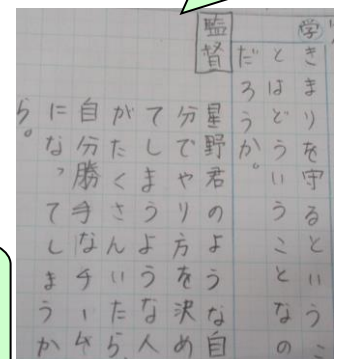 学
きまりを守るというこ
とはどういうことなの
だろうか。
監督
星野君のような自
分でやり方を決め
てしまうような人
がたくさんいたら、
自分勝手なチーム
になってしまうか
ら。